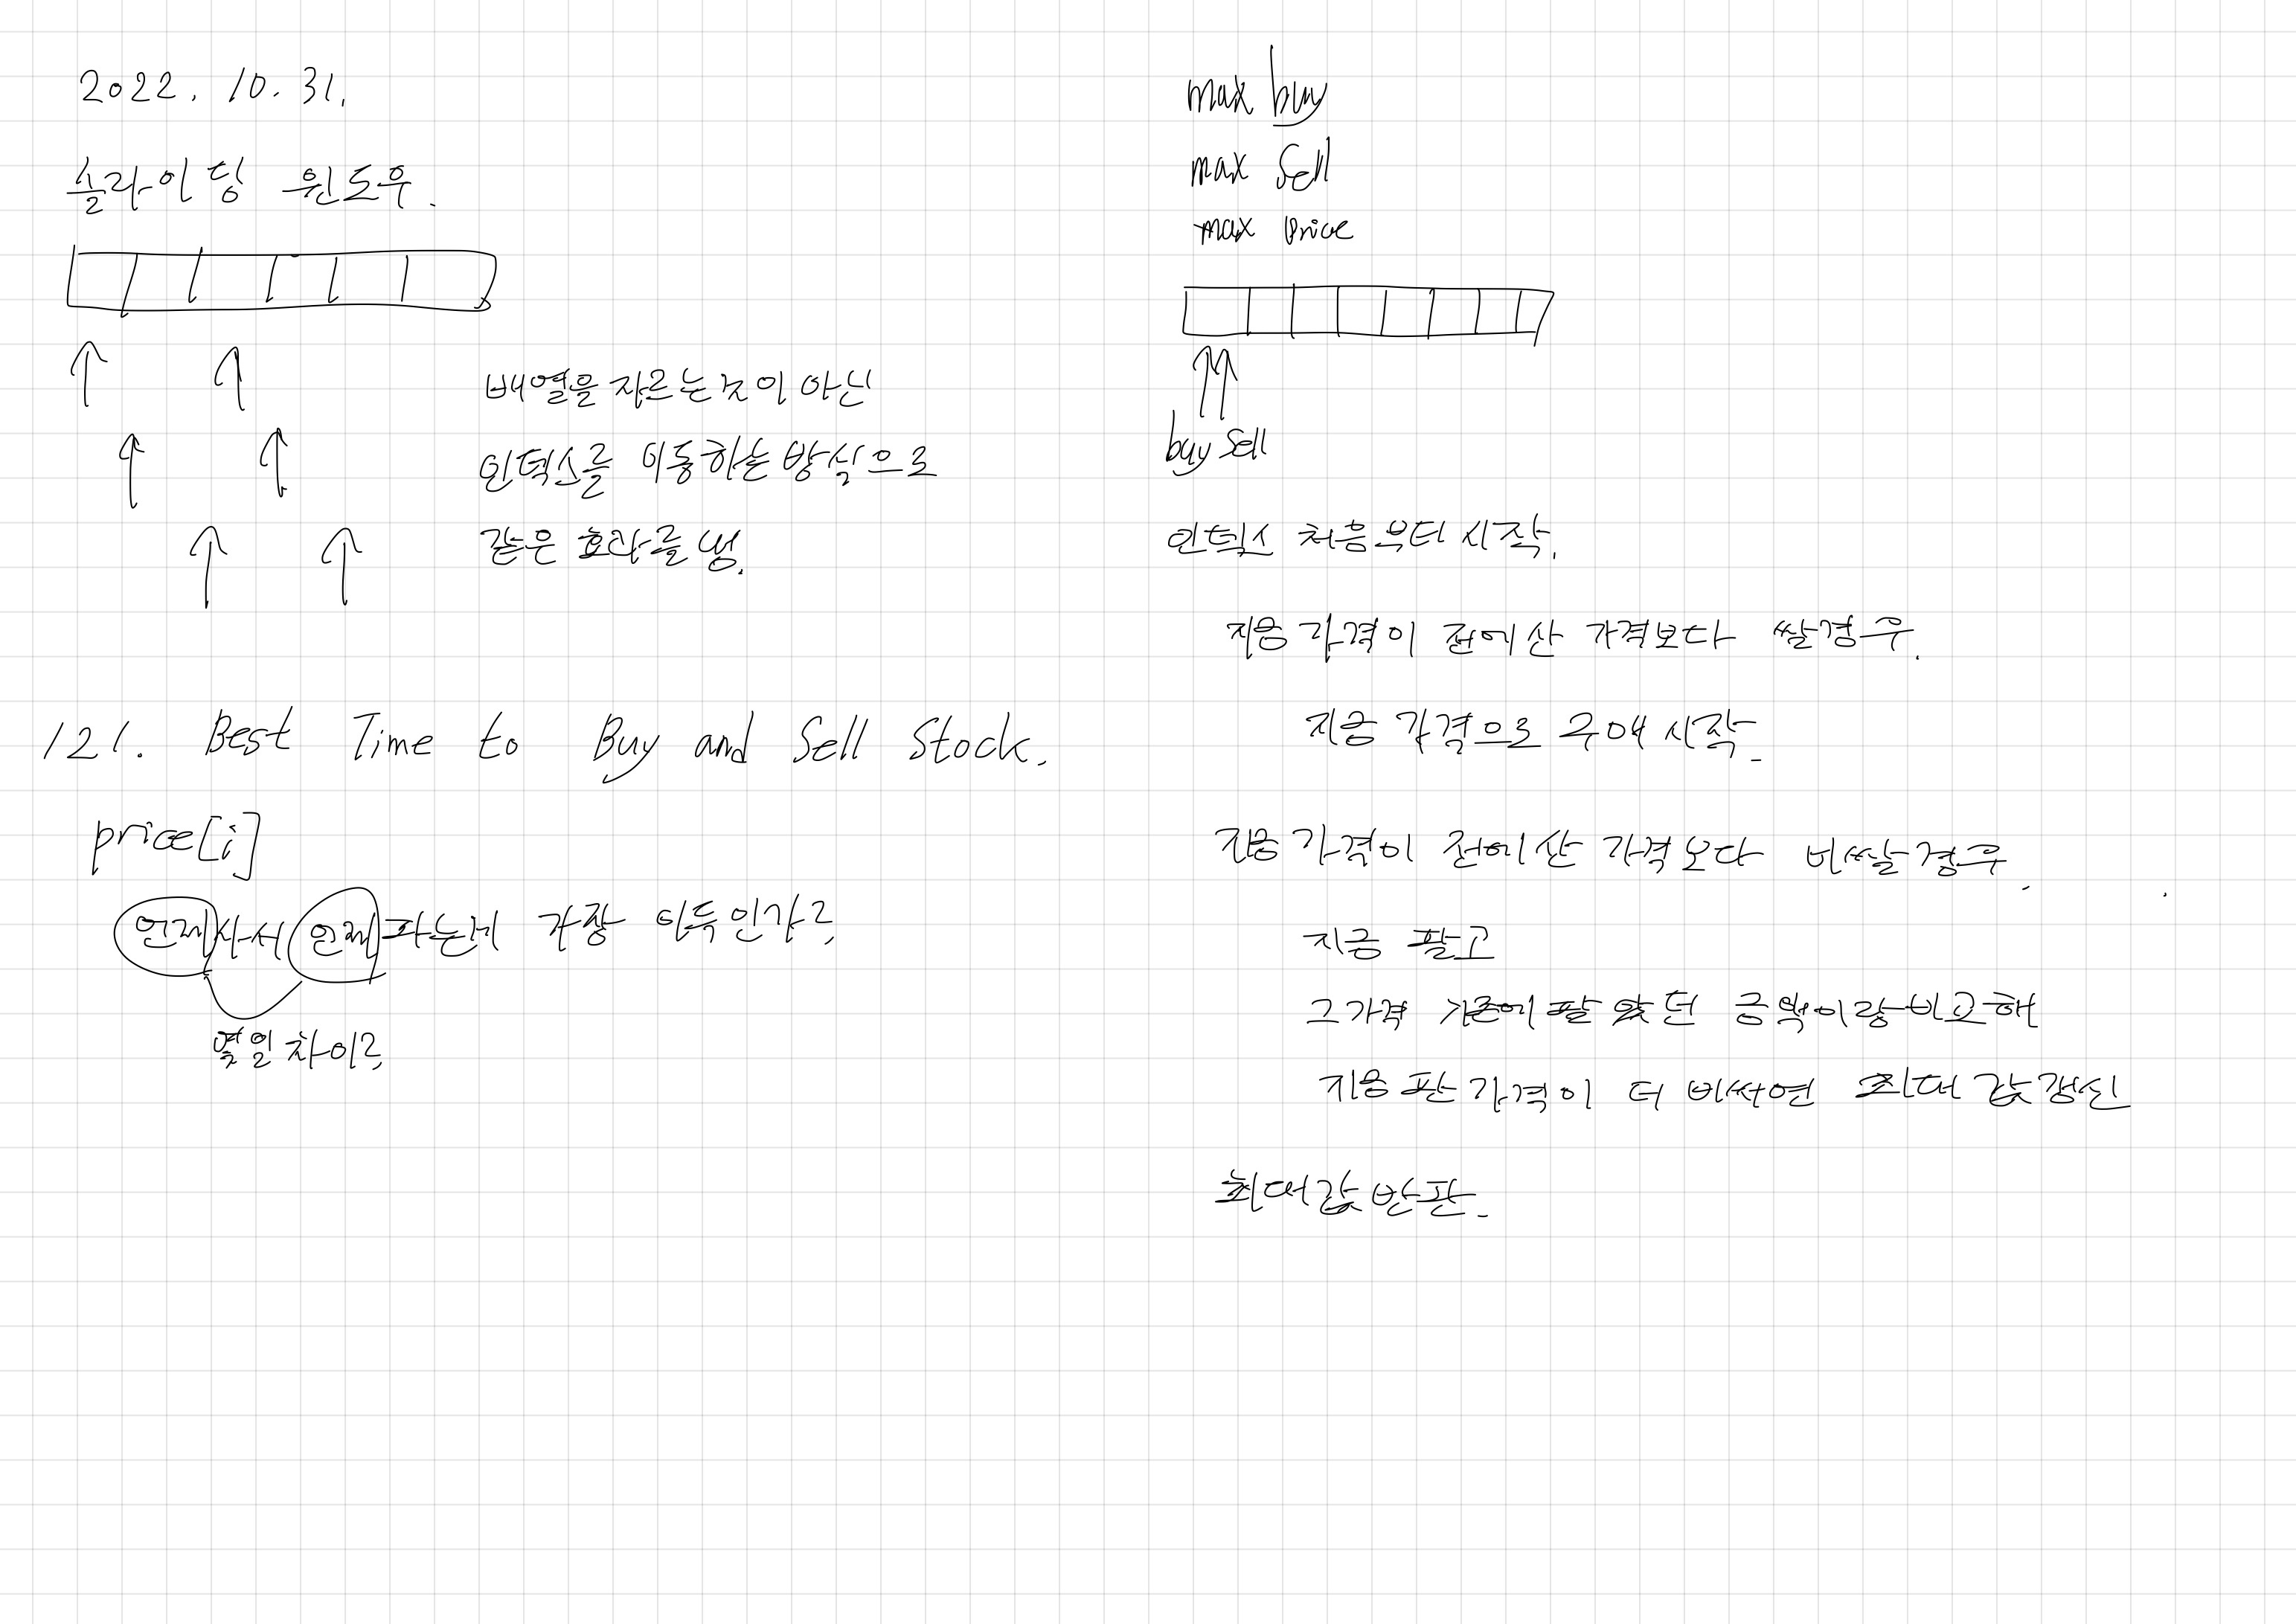 2022. 10. 31.
슬라이딩 윈도우.
배열을 자르는 것이 아닌
인덱스를 이동하는 방식으로
같은 효과를 냄.
121. Best Time to Buy and Sell Stock.
price[i]
언제 사서 언제 파는게 가장 이득인가?
몇일 차이?
max buy
max Sell
max price
buy sell
인덱스 처음부터 시작.
지금 가격이 전에 산 가격보다 쌀경우.
지금 가격으로 구매 시작.
지금 가격이 전에 산 가격보다 비쌀 경우.
지금 팔고
그 가격 기존에 팔았던 금액이랑 비교해
지금 판 가격이 더 비싸면 최대 값 갱신
최대 값 반환.